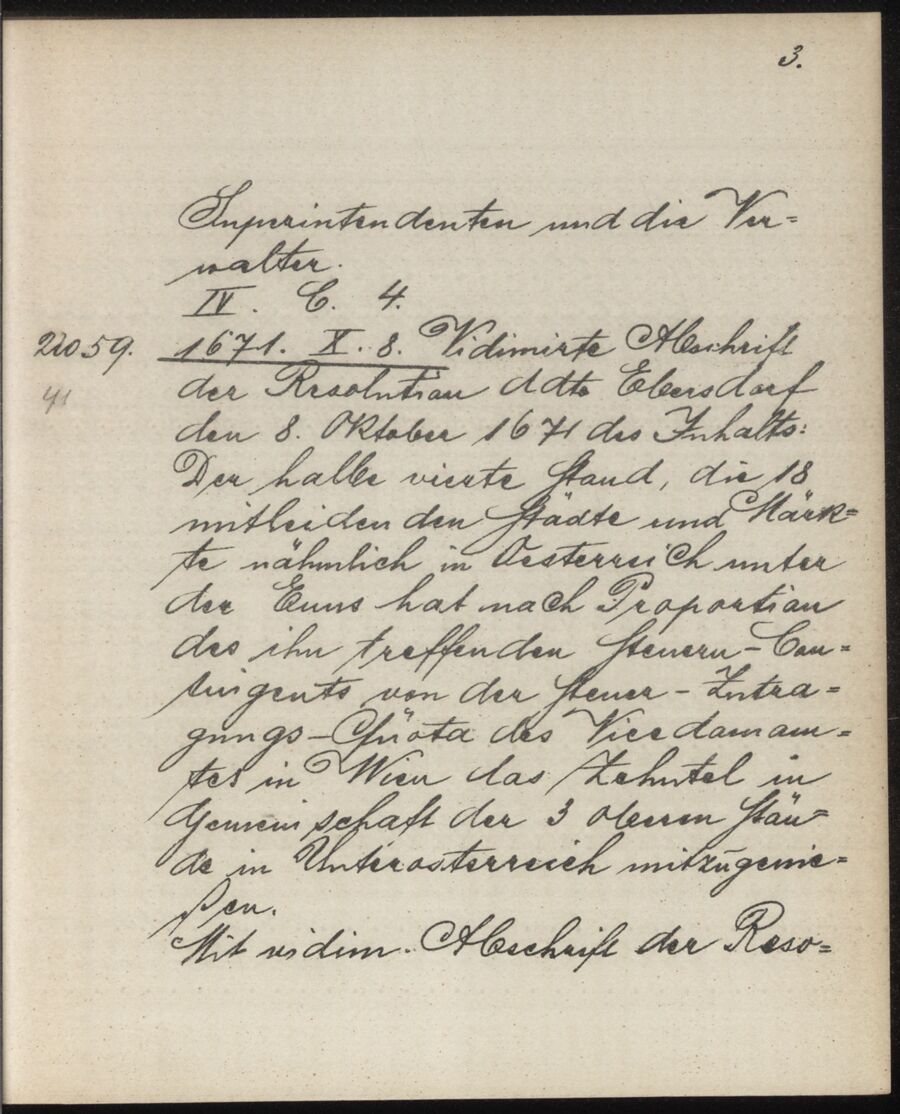 3.
Superintendenten und die Ver=
walter.
IV. C. 4.
No 59. 1671. X. 8. Vidimirte Abschrift
41 der Resolution ddto Ebersdorf
den 8. Oktober 1671 des Inhalts:
Der halbe vierte Stand, die 18
mitleidenden Städte und Märk=
te nähmlich in Oesterreich unter
der Enns hat nach Proportion
des ihn treffenden Steuern-Con=
tingents von der Steuer-Intra=
gungs-Quota des Vicedomam=
tes in Wien das Zehntel in
Gemeinschaft der 3 oberen Stän=
de in Unterosterreich mitzugenie=
ßen.
Mit vidim. Abschrift der Reso=